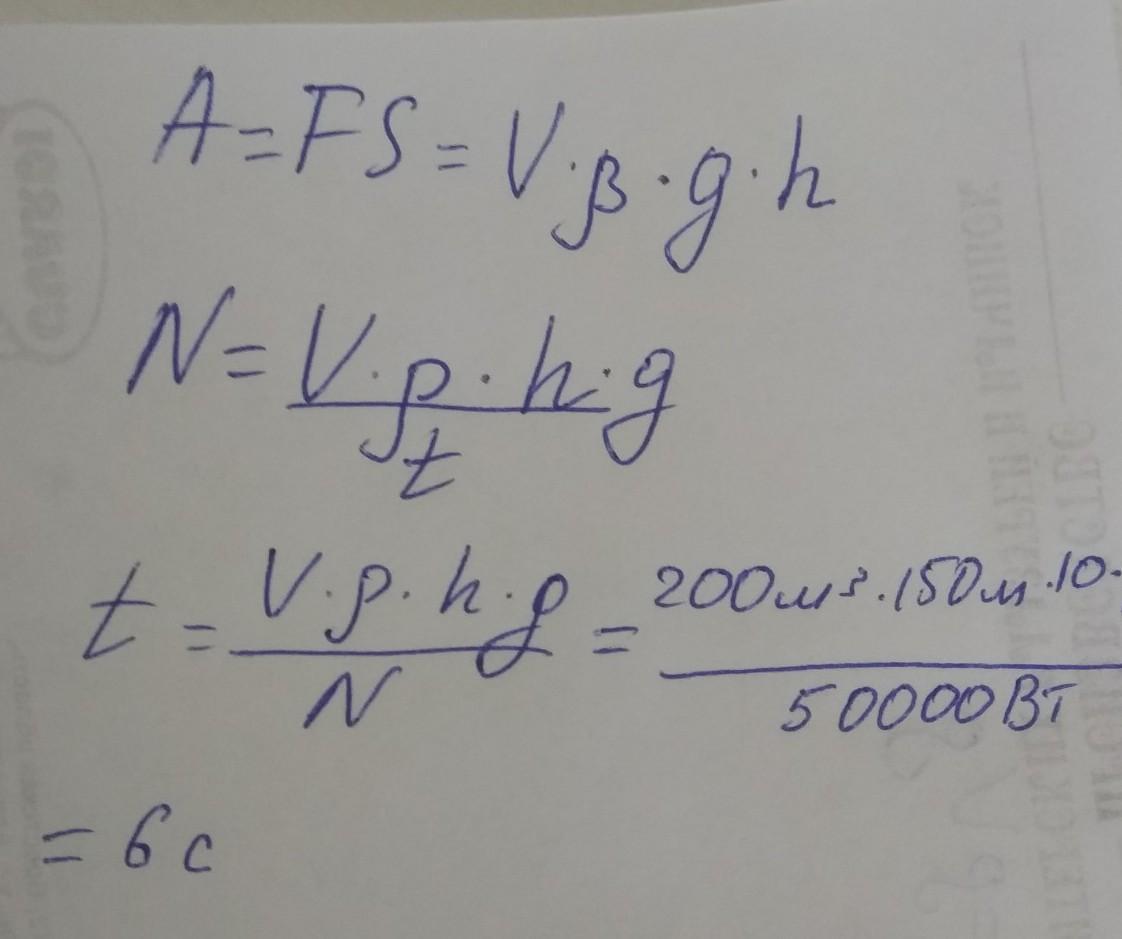 A = FS = V · ρ · g · h
N = V · ρ · h · g / t
t = V · ρ · h · g / N = 200 м³ · 150 м · 10 · / 50000 Вт
= 6 с